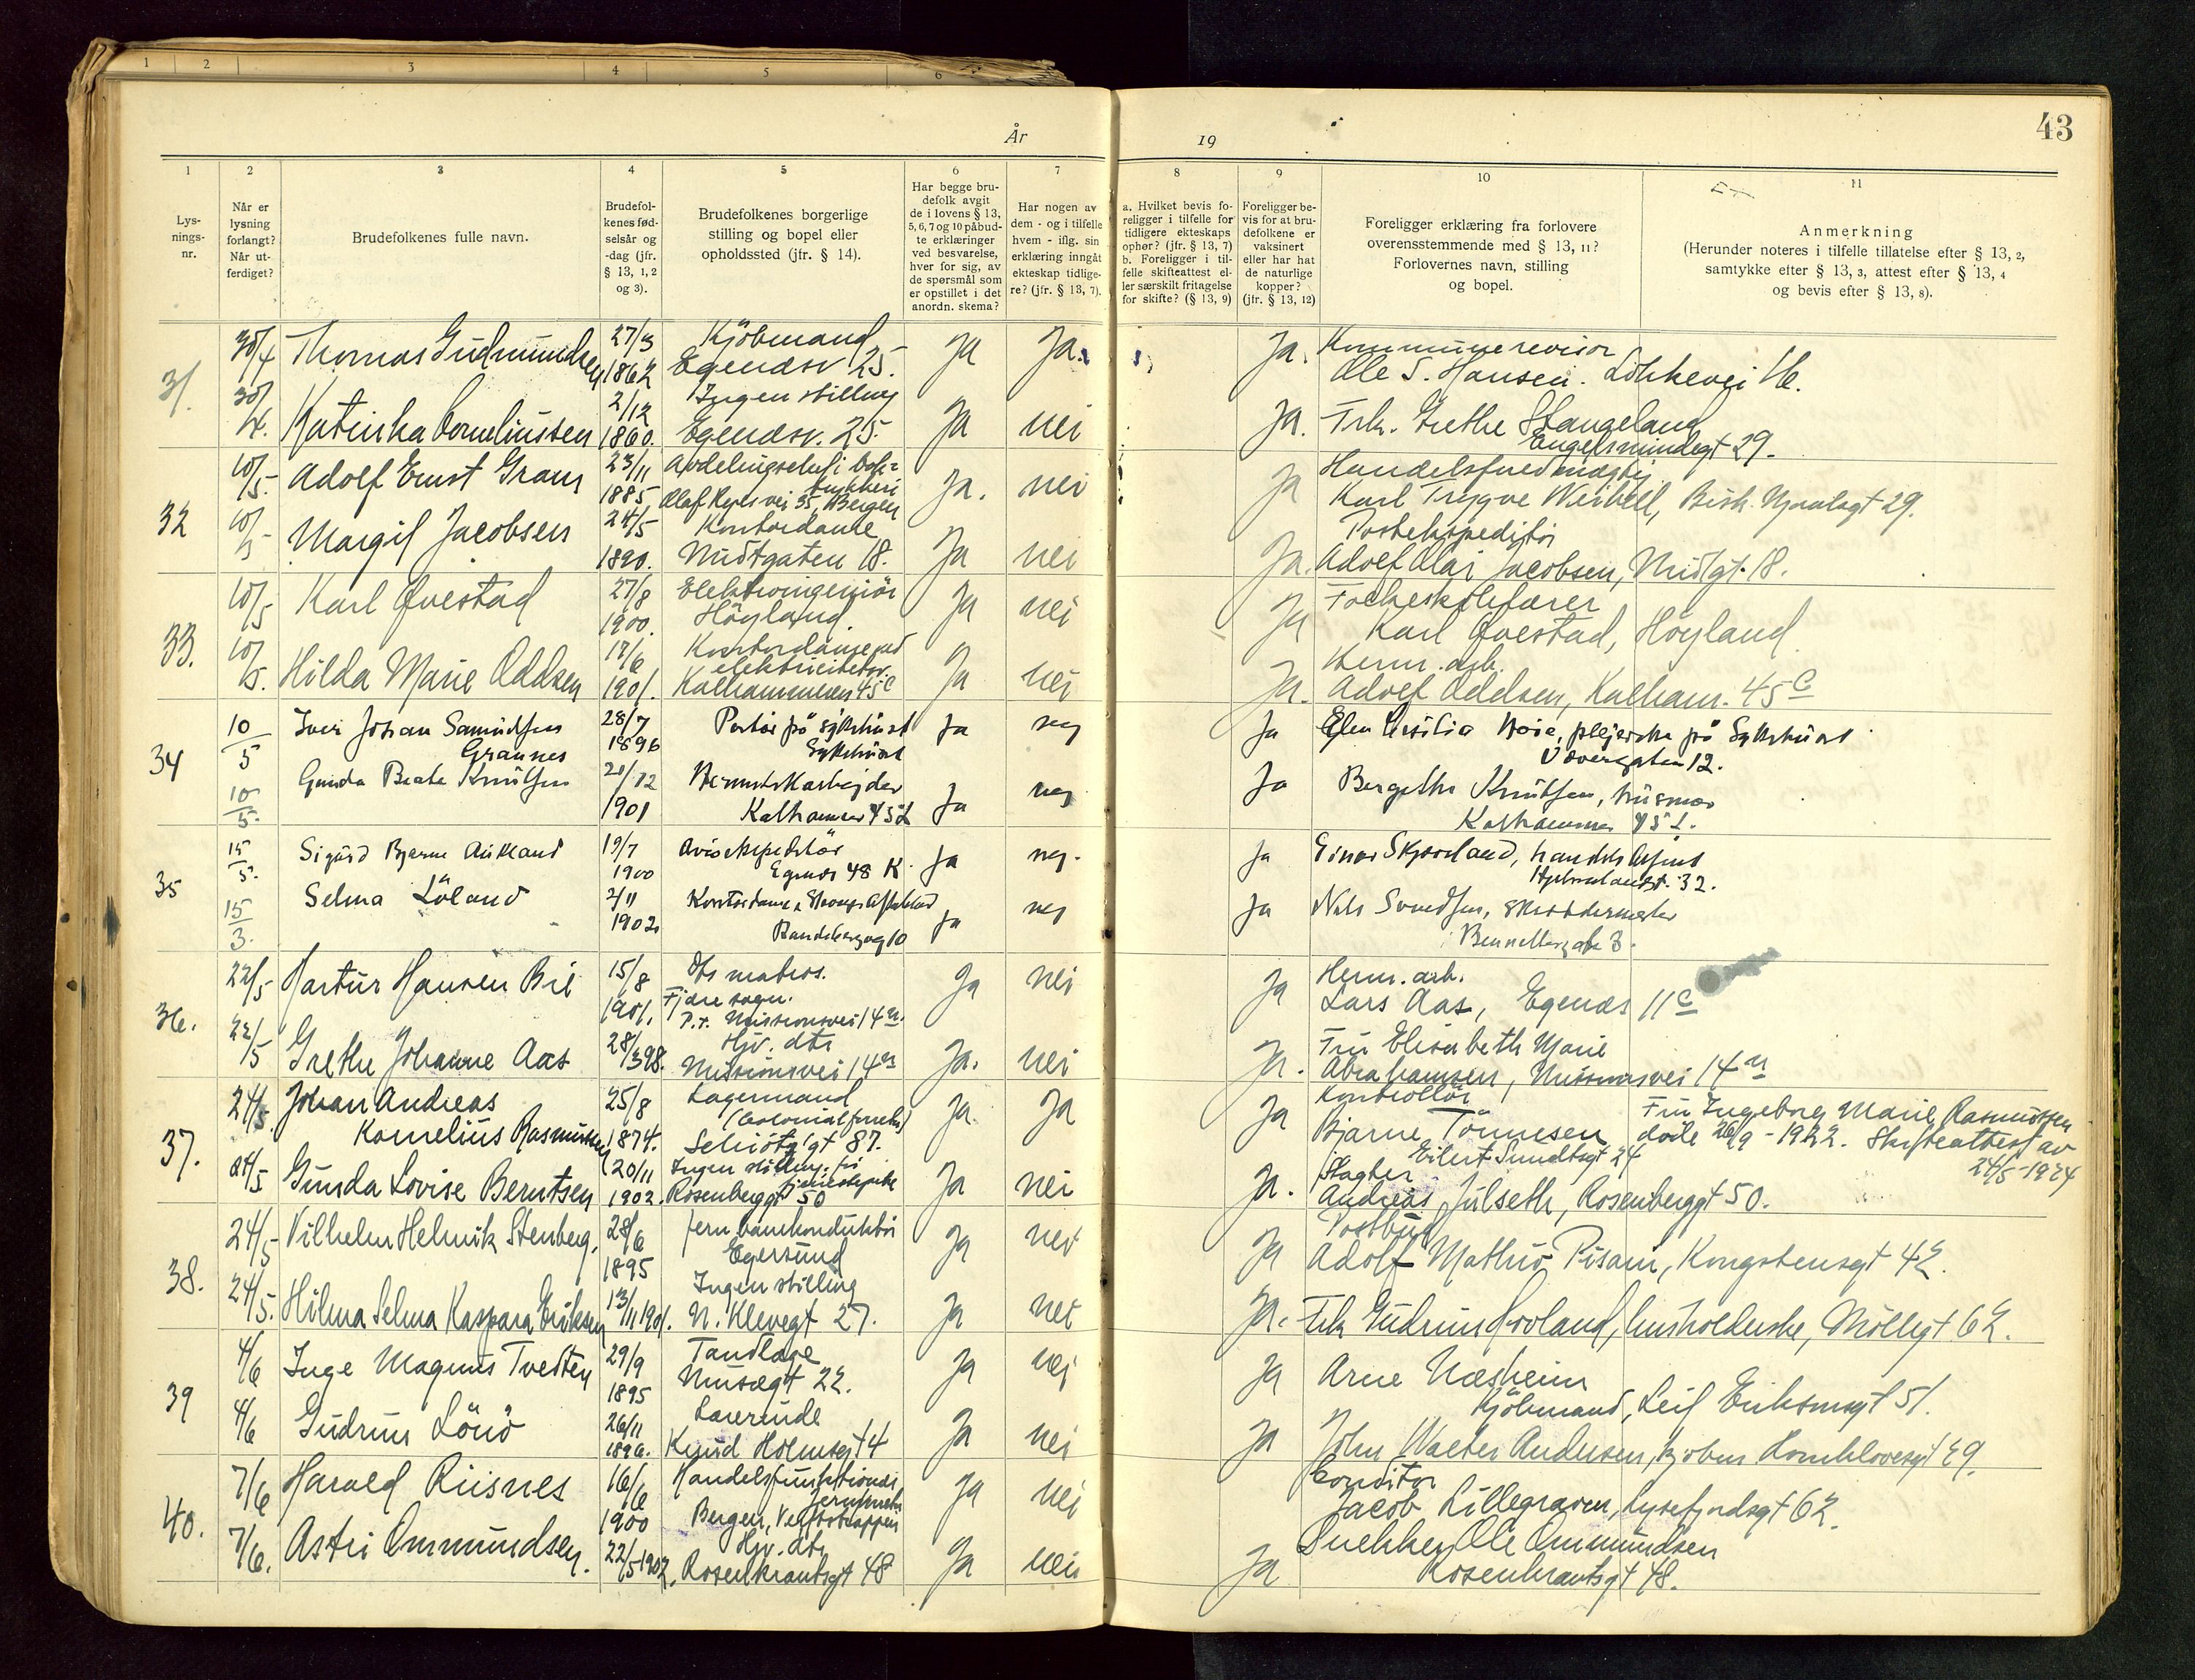 1 2 3 4 5 6
År 19
43
1 2 3 4 5 6 7 8 9 10 11
Lys-
nings-
nr.
Når er
lysning
forlangt?
Når ut-
ferdiget?
Brudefolkenes fulle navn.
Brudefol-
kenes fød-
selsår og
-dag (jfr.
§ 13, 1, 2
og 3).
Brudefolkenes borgerlige
stilling og bopel eller
opholdssted (jfr. § 14).
Har begge bru-
defolk avgit
de i lovens § 13,
5, 6, 7 og 10 påbud-
te erklæringer
ved besvarelse,
hver for sig, av
de spørsmål som
er opstillet i det
anordn. skema?
Har nogen av
dem - og i tilfelle
hvem - iflg. sin
erklæring inngåt
ekteskap tidlige-
re? (jfr. § 13, 7).
a. Hvilket bevis fo-
religger i tilfelle for
tidligere ekteskaps
ophør? (jfr. § 13, 7)
b. Foreligger i til-
felle skifteattest el-
ler særskilt fritagelse
for skifte? (§ 13, 9)
Foreligger be-
vis for at bru-
defolkene er
vaksinert
eller har hat
de naturlige
kopper?
(jfr. § 13, 12)
Foreligger erklæring fra forlovere
overensstemmende med § 13, 11?
Forlovernes navn, stilling
og bopel.
Anmerkning
(Herunder noteres i tilfelle tillatelse efter § 13, 2,
samtykke efter § 13, 3, attest efter § 13, 4
og bevis efter § 13, 8).
31. 30/4 Thomas Gudmundsen 27/3 1862 Kjöbmand
Egenæsv 25. Ja Ja. Ja. Kommunerevisor
Ole S. Hansen. Lökkevei 16.
30/4. Katinka Corneliussen 2/12 1860. Ingen stilling
Egenæsv. 25. Ja nei Ja. Frk. Grethe Stangeland
Engelsmindegt 29.
32 10/5. Adolf Ernst Gran 23/11 1885 Avdelingschef i bok=
trykkeri
Olaf Ryes vei 35, Bergen Ja. nei Ja Handelsfuldmægtig
Karl Trygve 29.
10/5 Margit Jacobsen 24/5 1890. Kontordame
Midtgaten 18. Ja nei Ja. Postekspeditör
Adolf Olai Jacobsen, Midtgt. 18.
33. 10/5 Karl Qvestad 27/8 1900. Elektroingeniör
Höyland. Ja nei Ja Folkeskolelærer
Karl Qvestad, Höyland.
10/5. Hilda Marie Oddsen 18/6 1901. Kontordame ved
elektricitetsv.
Kalhammeren 45c Ja nei Ja. Herm. arb.
Adolf Oddsen, Kalham. 45c
34 10/5 Iver Johan Samuelsen
Grannes 28/7 1896 Portör på sykehuset
Sykehuset Ja nej Ja Elen Cesilia Höie, plejerske på Sykehuset
10/5. Gunda Beate Knutsen 20/12 1901 Hermetikarbejder
Kalhammer 45 Ja nej Ja Bergethe Knutsen, husmor
Kalhammer 45
35 15/5. Sigurd Bjarne Aukland 19/7 1900 Avisekspeditör
Egenæs 48 K. Ja nej. Ja Einar Skjæveland, handelsagent
32.
15/3. Selma Löland 2/11 1902 Kontordame
10 Ja nej Ja Nils Svendsen, skreddermester
36. 22/5 Martin Hansen Bie 15/8 1901. Dts matros.
Fjære sogn.
P.t. Missionsvei 14 Ja nei Ja Herm. arb.
Lars Aas, Egenæs 11c
22/5 Grethe Johanne Aas 28/3 98. Hjv. dtr
Missionsvei 14 Ja. nei Ja. Fru Elisabeth Marie
Abrahamsen, Missionsvei 14
37. 24/5. Johan Andreas
Kornelius Rasmussen 25/8 1874. Lagermand
(Colonialforretn)
Schiötz'gt 87. Ja. Ja Ja Kontrollör
Bjarne Tönnesen
Eilert Sundtsgt 24
Fru Ingeborg Marie Rasmussen
döde 26/9-1922. Skifteattest av
24/5-1924
24/5 Gunda Lovise Berntsen 20/11 1902. Ingen stilling. fri
Rosenberggt 50 Ja nei Ja. Slagter
Andreas Julseth, Rosenberggt 50.
38. 24/5 Vilhelm Helmik Stenberg. 28/6 1895 Jernbanekonduktör
Egersund Ja nei Ja Postbud
Adolf Mathis Pisani, Kongstensgt 42.
24/5. Hilma Selma Kaspara Eriksen 13/11 1901. Ingen stilling
N. Klevegt 27. Ja nei Ja. Frk Gudrun Hovland, husholderske, Möllegt 62.
39 4/6 Inge Magnus Tvedten 29/9 1895 Tandlæge
Musægt 22. Ja nej Ja Arne Næsheim
Kjöbmand, Leif Eriksonsgt 51.
4/6 Gudrun Lönö 26/11 1896. Lærerinde
Knud Holmsgt 4 Ja nei Ja John Walter Andersen, kjöbm
40. 7/6 Harald Riisnes 16/6 1900 Handelsfunktionær
Bergen, Ja nei Conditor
Jacob Lillegraven, Lysefjordsgt 62.
7/6. Astri Ommundsen. 22/5 1902. Hjv. dtr
Rosenkrantzgt 48 Ja nei Ja Snekker Ole Ommundsen
Rosenkrantzgt 48.